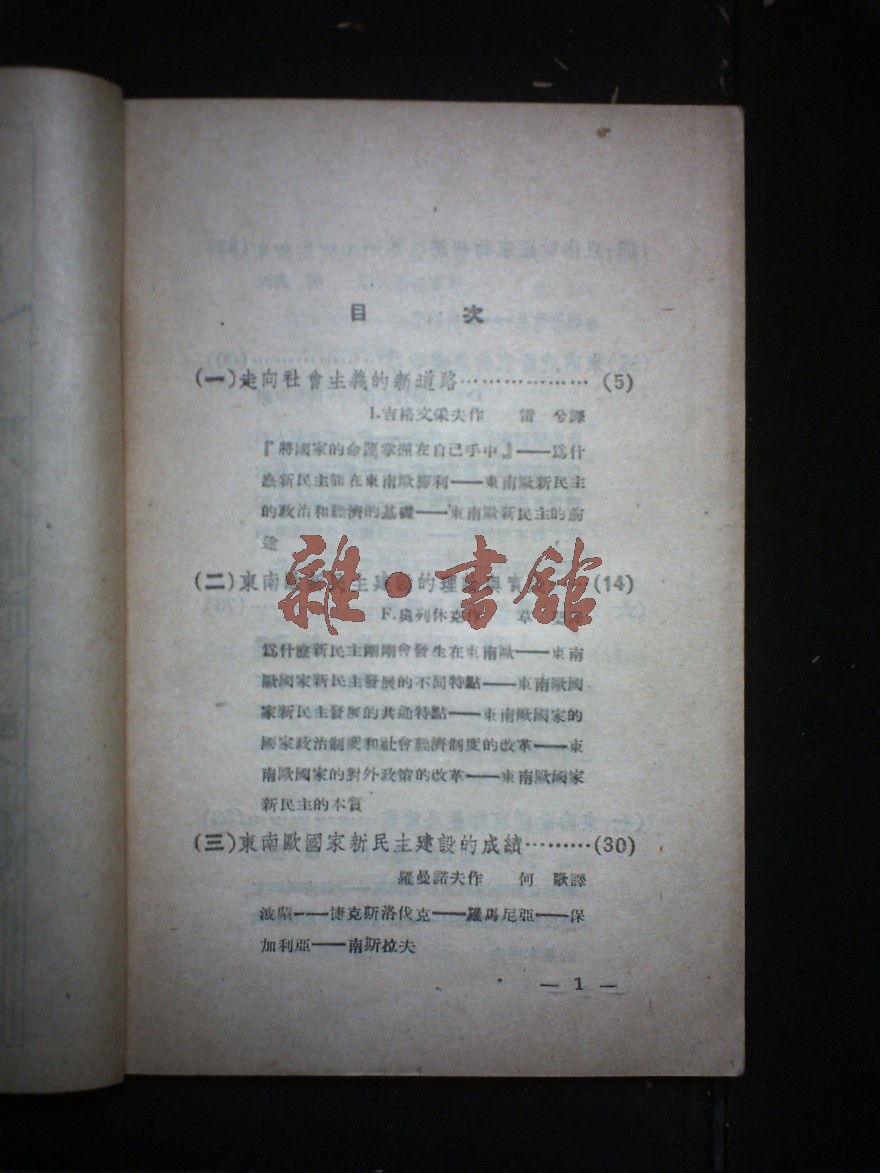 目 次
(一)走向社會主義的新道路……………… (5)
I.吉洛文采夫作 雷兮譯
『將國家的命運掌握在自己手中』——爲什
麽新民主能在東南歐勝利——東南歐新民主
的政治和經濟的基礎——東南歐新民主的前
途
(二)東南歐新民主建設的理論與實 (14)
F.奥列休克作
爲什麽新民主剛剛會發生在東南歐——東南
歐國家新民主發展的不同特點——東南歐國
家新民主發展的共通特點——東南歐國家的
國家政治制度和社會經濟制度的改革——東
南歐國家的對外政策的改革——東南歐國家
新民主的本質
(三)東南歐國家新民主建設的成績………(30)
羅曼諾夫作 何歌譯
波蘭——捷克斯洛伐克——羅馬尼亞——保
加利亞——南斯拉夫
— 1 —
雜·書館